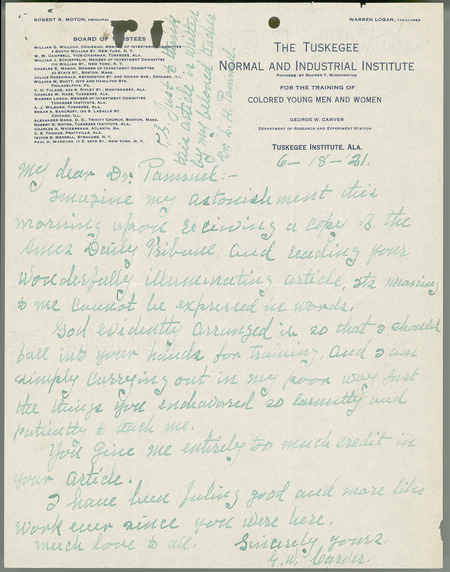 ROBERT R. MOTON, PRINCIPAL
WARREN LOGAN, TREASURER
BOARD OF TRUSTEES
WILLIAM G. WILLCOX, CHAIRMAN, MEMBER OF INVESTMENT COMMITTEE
3 SOUTH WILLIAM ST. NEW YORK, N. Y.
W. W. CAMPBELL, VICE-CHAIRMAN, TUSKEGEE, ALA.
WILLIAM J. SCHIEFFELIN, MEMBER OF INVESTMENT COMMITTEE
NEW YORK, N. Y.
CHARLES E. MASON, MEMBER OF INVESTMENT COMMITTEE
30 STATE ST., BOSTON, MASS.
JULIUS ROSENWALD, ARTHINGTON ST. AND HOMAN AVE., CHICAGO, ILL.
WILLIAM M. SCOTT, 14TH AND HAMILTON STS.
PHILADELPHIA, PA.
V. H. TULANE, 415 S. RIPLEY ST., MONTGOMERY, ALA.
CHARLES W. HARE, TUSKEGEE, ALA.
WARREN LOGAN, MEMBER OF INVESTMENT COMMITTEE
TUSKEGEE INSTITUTE, ALA.
A. J. WILBORN, TUSKEGEE, ALA.
EDGAR A. BANCROFT, LA SALLE ST.
CHICAGO, ILL.
ALEXANDER MANN, D. D., TRINITY CHURCH, BOSTON, MASS.
ROBERT R. MOTON, TUSKEGEE INSTITUTE, ALA.
CHARLES A. WICKERSHAM, ATLANTA, GA.
C. E. THOMAS, PRATTVILLE, ALA.
IRVING S. MERRELL, SYRACUSE, N. Y.
PAUL M. WARBURG, 17 E. 80TH ST., NEW YORK, N. Y.
P.S. just to think
this article is written
by my beloved teacher
Dr. L. Pammel.
THE TUSKEGEE
NORMAL AND INDUSTRIAL INSTITUTE
FOUNDED BY BOOKER T. WASHINGTON
FOR THE TRAINING OF
COLORED YOUNG MEN AND WOMEN
GEORGE W. CARVER
DEPARTMENT OF RESEARCH AND EXPERIMENT STATION
TUSKEGEE INSTITUTE, ALA.
6-18-21.
My dear Dr. Pammel:-
Imagine my astonishment this
morning upon receiving a copy of the
Ames Daily Tribune, and reading your
wonderfully illuminating article, its meaning
to me cannot be expressed in words.
God evidently arranged it so that I should
fall into your hands for training, and I am
simply carrying out in my poor way just
the things you endeavored so earnestly and
patiently to teach me.
You give me entirely too much credit in
your article.
I have been feeling good and more like
work ever since you were here.
much love to all. Sincerely yours.
G. W. Carver.